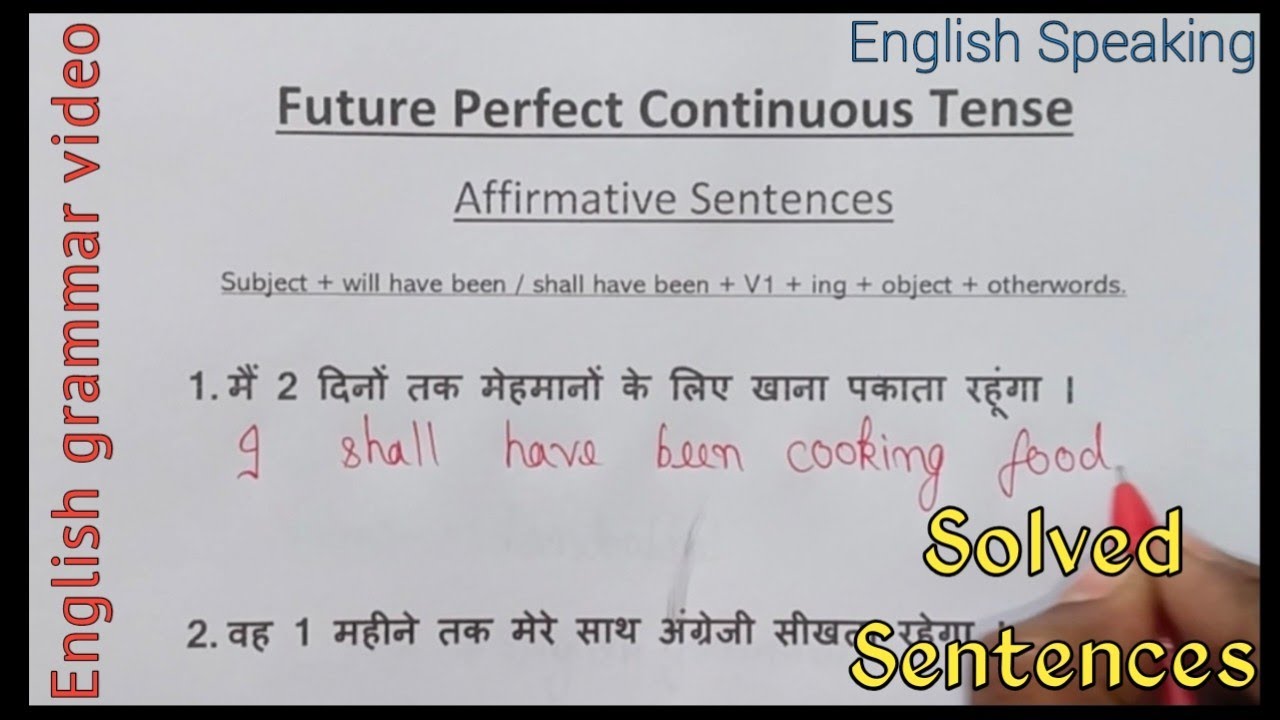 English Speaking
English grammar video
Future Perfect Continuous Tense
Affirmative Sentences
Subject + will have been / shall have been + V1 + ing + object + otherwords.
1. मैं 2 दिनों तक मेहमानों के लिए खाना पकाता रहूंगा ।
I shall have been cooking food
Solved
2. वह 1 महीने तक मेरे साथ अंग्रेजी सीखता रहेगा ।
Sentences